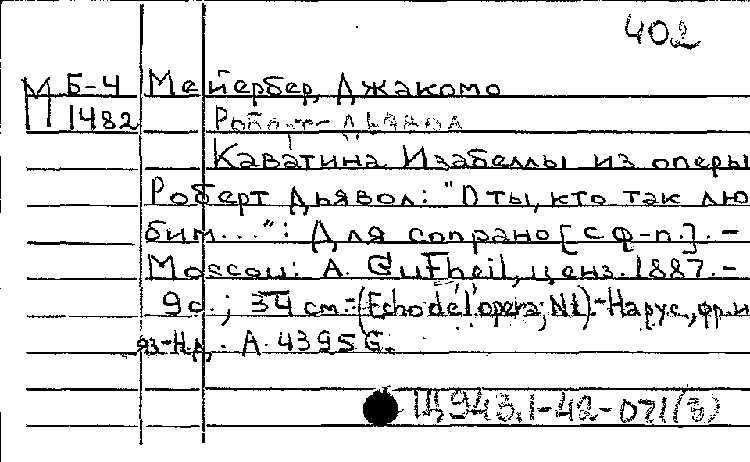 402
М Б-4 Мейербер, Джакомо
1482 Роберт-Дьявол
Каватина Изабеллы из оперы
Роберт Дьявол: "О ты, кто так лю
бим...": Для сопрано [с ф-п.]. -
Moscou: A. Gutheil, ценз. 1887. -
9 с.; 34 см. - (Echo de l'opera; N1). - На рус., фр. и
яз. - Н.д. A. 4395 G.
Щ943.1-42-071(3)